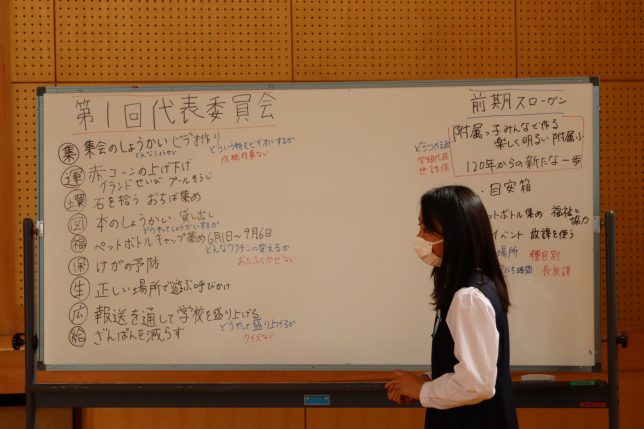 第1回代表委員会
集 集会のしょうかい ビデオ作り
どんなしょうかい
どういう物をビデオにするか
運 赤コーンの上げ下げ
グランドせいび プールそうじ
環 石を拾う おちば集め
図 本のしょうかい 貸し出し
どうやってしょうかいするか
福 ペットボトルキャップ集め 6月1日〜9月6日
どんなワクチンに変えるか
保 けがの予防
生 正しい場所で遊ぶ呼びかけ
広 報送を通して学校を盛り上げる
どうやって盛り上げるか
クイズなど
給 ざんぱんを減らす
前期スローガン
附属っ子みんなで作る
楽しく明るい附属小
120年からの新たな一歩
目安箱
ットボトル集め 福祉と協力
イベント 放課を使う
場所 種目別
時間 長放課